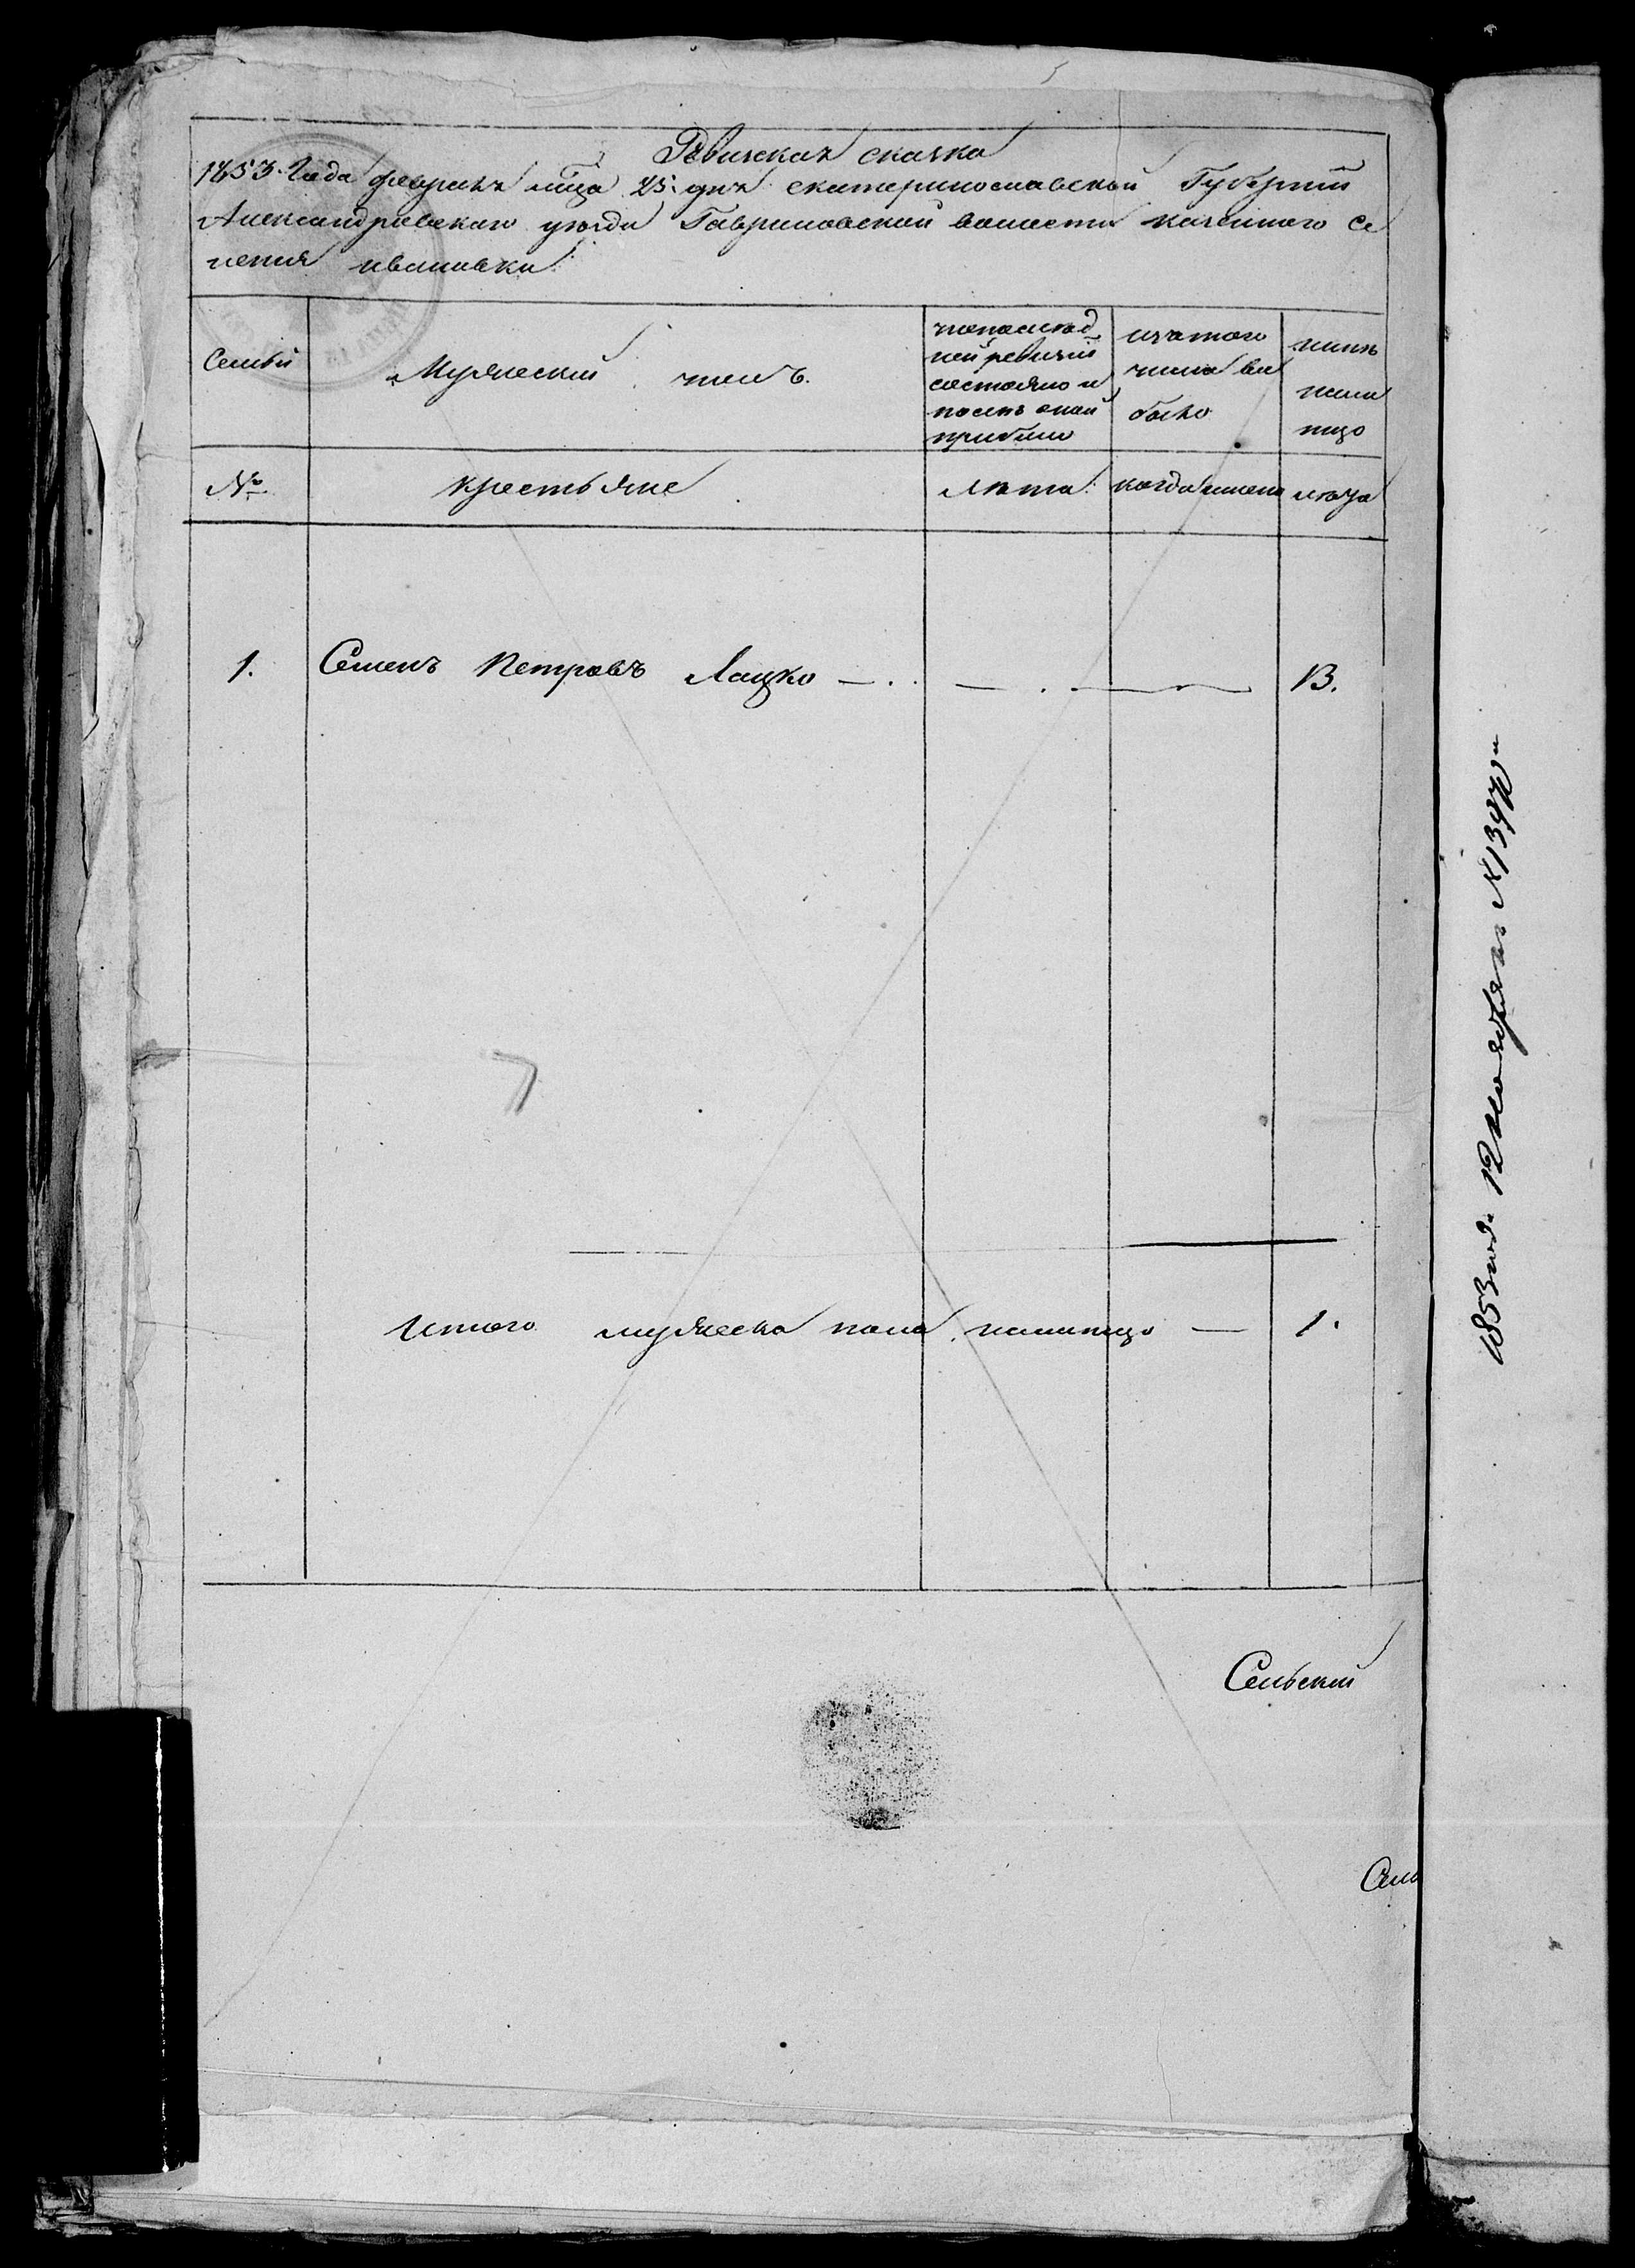 Ревизская сказка
1853 Года февраля мца 25. дня екатеринославской Губернии
Александровского уезда Гавриловской волости казенного Се
ления ивановки
Семьи
Мужеский полъ.
попослед
ней ревизии
состояло и
после оной
прибыло
изътого
числа вы
было
ныне
нали
тцо
№
крестьяне
Лета
когда имено
лета
1. Семенъ Петровъ Лацко — . . — . — 13.
Итого мужеска пола налитцо — 1.
Сельский
Сель
1853 год. 12 Ноября